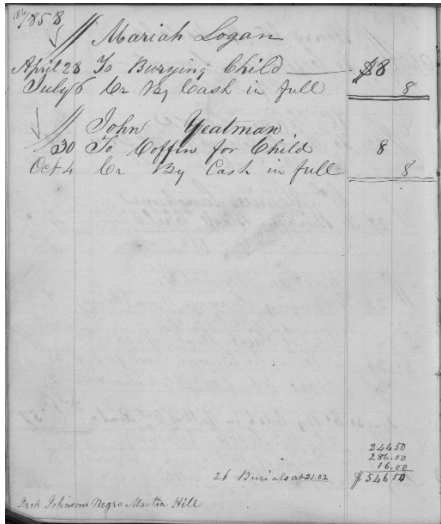 1858
Mariah Logan
April 28 To Burying Child $8
July 6 Cr By Cash in full 8
John Yeatman
30 To Coffin for Child 8
Oct 4 Cr By Cash in full 8
24450
286.00
16.00
26 Burials at 21.02 $54650
Johnson Negro Martha Hill